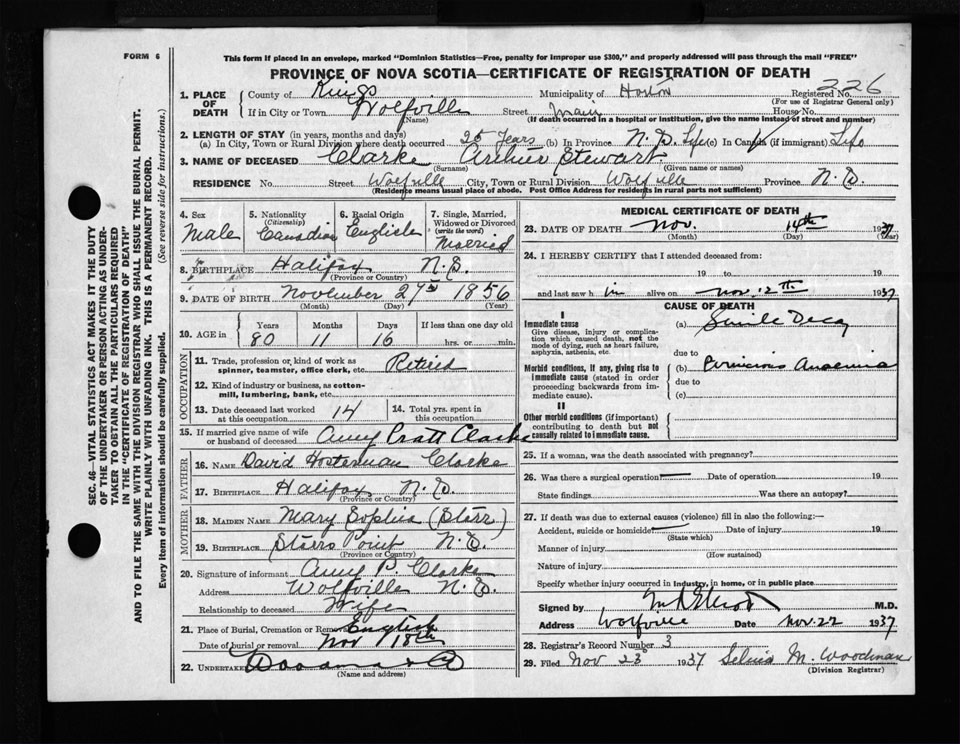 FORM 6
This form if placed in an envelope, marked "Dominion Statistics—Free, penalty for improper use $300," and properly addressed will pass through the mail "FREE"
PROVINCE OF NOVA SCOTIA—CERTIFICATE OF REGISTRATION OF DEATH
226
1. PLACE OF DEATH County of Kings Municipality of Horton Registered No.
(For use of Registrar General only)
If in City or Town Wolfville Street Main House No.
(Name) (If death occurred in a hospital or institution, give the name instead of street and number)
2. LENGTH OF STAY (in years, months and days)
(a) In City, Town or Rural Division where death occurred 25 Years (b) In Province N.S. Life (c) In Canada (if immigrant) Life
3. NAME OF DECEASED Clarke Archer Stewart
(Surname) (Given name or names)
RESIDENCE No. Street Wolfville City, Town or Rural Division Wolfville Province N.S.
(Residence means usual place of abode. Post Office Address for residents in rural parts not sufficient)
SEC. 46—VITAL STATISTICS ACT MAKES IT THE DUTY
OF THE UNDERTAKER OR PERSON ACTING AS UNDER-
TAKER TO OBTAIN ALL THE PARTICULARS REQUIRED
IN THE "CERTIFICATE OF REGISTRATION OF DEATH"
AND TO FILE THE SAME WITH THE DIVISION REGISTRAR WHO SHALL ISSUE THE BURIAL PERMIT.
WRITE PLAINLY WITH UNFADING INK. THIS IS A PERMANENT RECORD.
Every item of information should be carefully supplied. (See reverse side for instructions.)
4. Sex Male
5. Nationality (Citizenship) Canadian
6. Racial Origin English
7. Single, Married, Widowed or Divorced (write the word) Married
8. BIRTHPLACE Halifax N.S.
(Province or Country)
9. DATE OF BIRTH November 27th 1856
(Month) (Day) (Year)
10. AGE in Years 80 Months 11 Days 16 If less than one day old hrs. or min.
OCCUPATION
11. Trade, profession or kind of work as spinner, teamster, office clerk, etc. Retired
12. Kind of industry or business, as cotton-mill, lumbering, bank, etc.
13. Date deceased last worked at this occupation 14
14. Total yrs. spent in this occupation
15. If married give name of wife or husband of deceased Amy Pratt Clarke
FATHER
16. NAME David Hosterman Clarke
17. BIRTHPLACE Halifax N.S.
(Province or Country)
MOTHER
18. MAIDEN NAME Mary Sophia (Starr)
19. BIRTHPLACE Starrs Point N.S.
(Province or Country)
20. Signature of informant Amy P. Clarke
Address Wolfville N.S.
Relationship to deceased Wife
21. Place of Burial, Cremation or Removal English
Date of burial or removal Nov 18th
22. UNDERTAKER
(Name and address)
MEDICAL CERTIFICATE OF DEATH
23. DATE OF DEATH Nov. 14th 1937
(Month) (Day) (Year)
24. I HEREBY CERTIFY that I attended deceased from:
19 to 19
and last saw him alive on Nov. 12th. 1937
CAUSE OF DEATH
I
Immediate cause (a) Senile Decay
Give disease, injury or complication which caused death, not the mode of dying, such as heart failure, asphyxia, asthenia, etc.
due to
Morbid conditions, if any, giving rise to immediate cause (stated in order proceeding backwards from immediate cause). (b) Pernicious Anaemia
due to
(c)
II
Other morbid conditions (if important) contributing to death but not causally related to immediate cause.
25. If a woman, was the death associated with pregnancy?
26. Was there a surgical operation? Date of operation 19
State findings Was there an autopsy?
27. If death was due to external causes (violence) fill in also the following:—
Accident, suicide or homicide Date of injury 19
(State which)
Manner of injury
(How sustained)
Nature of injury
Specify whether injury occurred in industry, in home, or in public place
Signed by M.D.
Address Wolfville Date Nov. 22 1937
28. Registrar's Record Number 3
29. Filed Nov 23 1937 Selina M. Woodman
(Division Registrar)